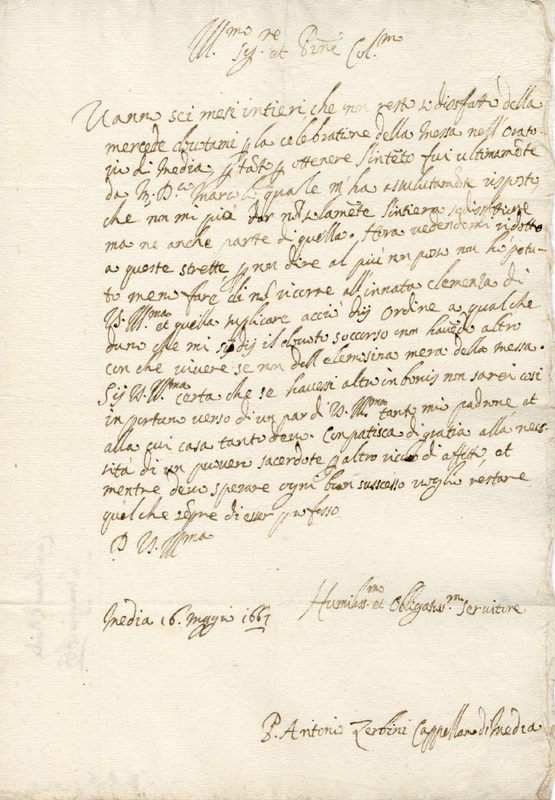 Ill.mo re
Sig. et Prōne Col.mo
Vanno sei mesi intieri che non resto sodisfatto della
mercede dovutami p la celebratione della Messa nell'orato-
rio di Media, p tāt p ottenere l'intēto fui ultimamēte
da M. D. Marco quale m'ha assolutamēte risposto
che non mi può dar nō solamēte l'intiera
ma ne anche parte di quella. Hora vedendomi ridotto
a queste strette p non dire al più non posso non ho potu-
to meno fare di nō ricorrer all'innata clemenza di
V.S. Ill.ma et quella suplicare acciò dij ordine a qualche
duno che mi dij il dovuto soccorso non havēdo altro
con che vivere se non dell'elemosina mera della messa.
Sij V.S. Ill.ma certa che se havessi altro in bonis non sarei così
inportuno verso di un par di V.S. Ill.ma tanto mio padrone et
alla cui casa tanto devo. Conpatisca di gratia alla neces-
sità di un povero sacerdote p altro di affetto, et
mentre devo sperare ogni buon successo voglio restare
quel che sēpre di esser professo
D V.S. Ill.ma
Humiliss.mo et Obligatiss.mo servitore
Media 16. Maggio 1667
P. Antonio Zerbini Cappellano di Media